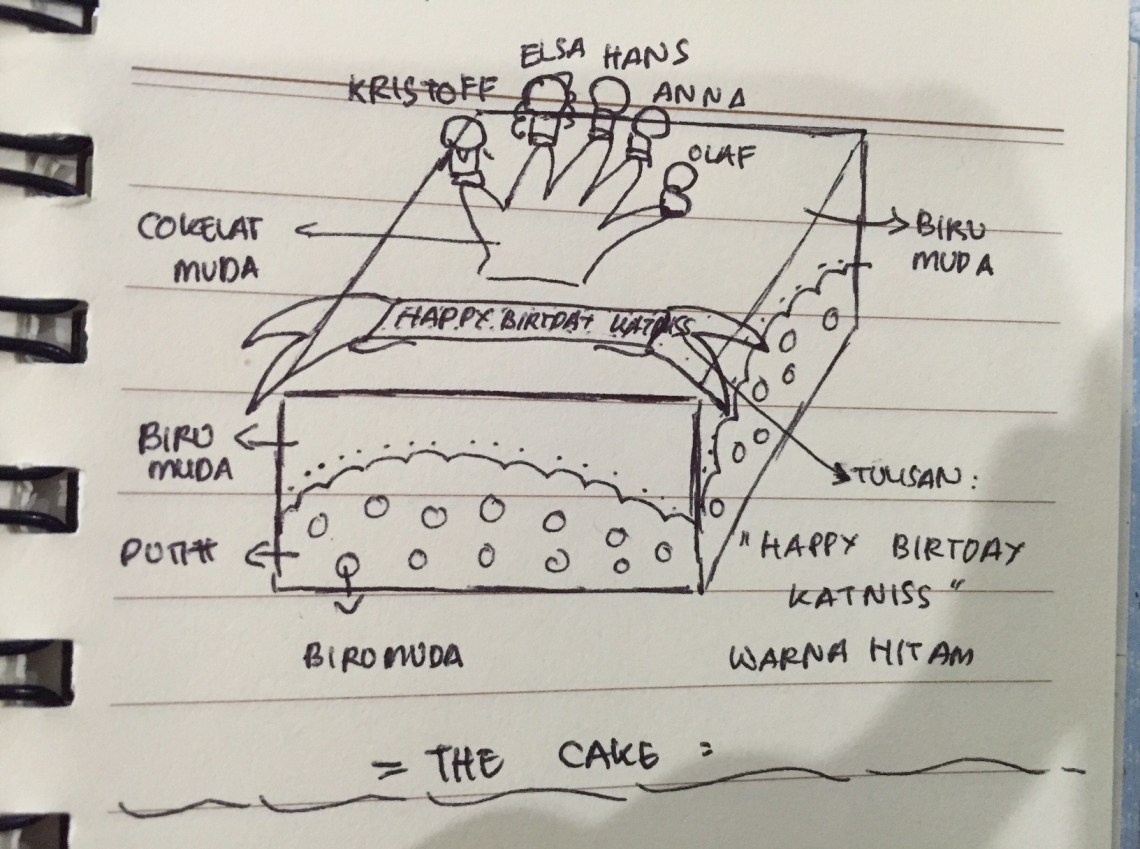 ELSA HANS
KRISTOFF
ANNA
OLAF
COKELAT
MUDA
BIRU
MUDA
HAPPY BIRTDAY KATNISS
BIRU
MUDA
TULISAN:
PUTIH
"HAPPY BIRTDAY
KATNISS"
BIRU MUDA
WARNA HITAM
= THE CAKE =